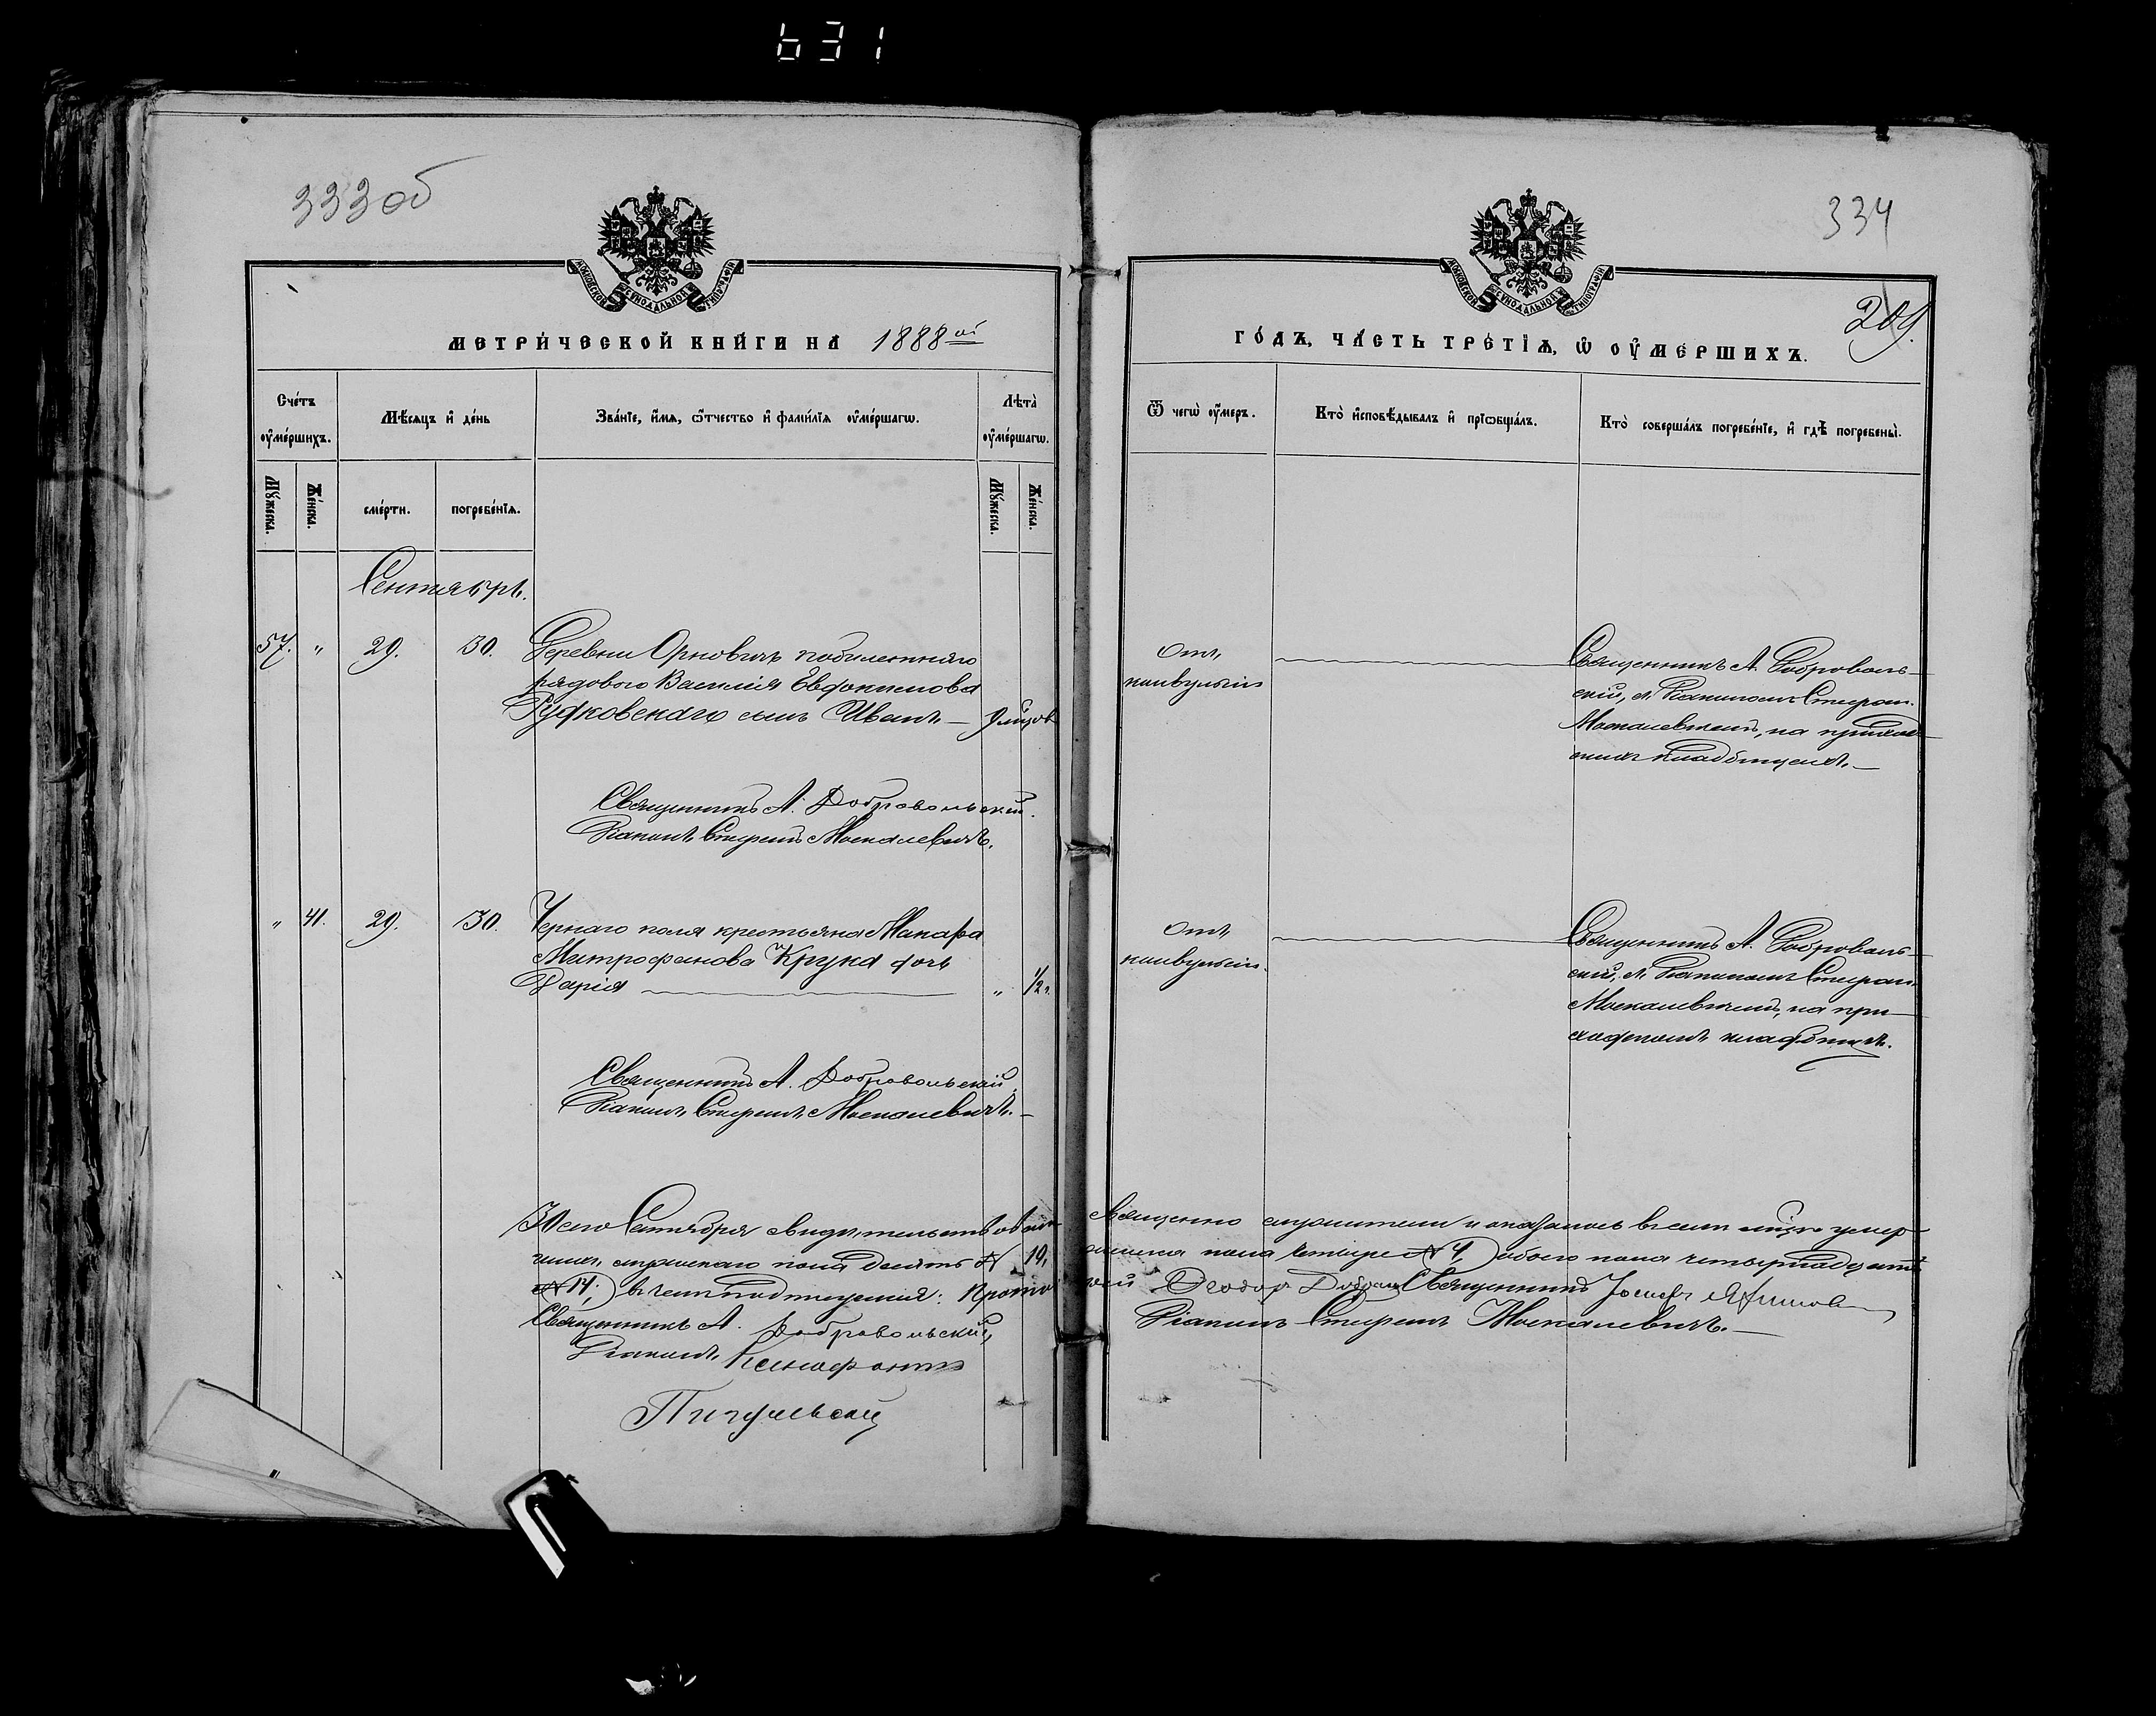 631
333 об
334
209.
МОСКОВСКОЙ СѴНОДАЛЬНОЙ ТИПОГРАФІИ
МОСКОВСКОЙ СѴНОДАЛЬНОЙ ТИПОГРАФІИ
МЕТРИ́ЧЕСКОЙ КНИ́ГИ НА 1888 ой
ГО́ДЪ, ЧА́СТЬ ТРЕ́ТІѦ, Ѡ҆ ОУ҆МЕ́РШИХЪ.
Сче́тъ оу҆ме́ршихъ.
Мѣ́сѧцъ и҆ де́нь
Зва́нїе, и҆́мѧ, ѻ҆́тчество и҆ фами́лїѧ оу҆ме́ршагѡ.
Лѣта̀ оу҆ме́ршагѡ.
Ѿ чегѡ̀ оу҆́меръ.
Кто̀ и҆сповѣ́дывалъ и҆ прїѡбща́лъ.
Кто̀ соверша́лъ погребе́нїе, и҆ гдѣ̀ погребены̀.
Мꙋ́жеска.
Же́нска.
сме́рти.
погребе́нїѧ.
Мꙋ́жеска.
Же́нска.
Сентябрь.
57. " 29. 30. Деревни Орновичъ
рядового Василія Евдокимова
Рудковскаго сынъ Иванъ —
Отъ
конвульсіи
Священникъ А. Доброволь-
скій, съ Діакономъ Стефан.
Москалевичемъ, на приход-
скомъ кладбищѣ. —
Священникъ А. Добровольскій.
Діаконъ Стефанъ Москалевичъ.
" 41. 29. 30. Чернаго поля крестьянина Макара
Митрофанова Крука дочь
Дарія — " 1/2 г.
Отъ
конвульсіи.
Священникъ А. Доброволь-
скій, съ Діакономъ Стефан.
Москалевичемъ, на при-
ходскомъ кладбищѣ.
Священникъ А. Добровольскій.
Діаконъ Стефанъ Москалевичъ. —
30 сего Сентября свидѣтельствовали священно служители и оказалось всѣхъ умер-
шихъ, мужескаго пола десять № 10, женска пола четыре № 4, обоего пола четырнадцать
№ 14, въ чемъ и подписуемся: Протоіерей Ѳеодоръ Священникъ Іосифъ
Священникъ А. Добровольскій, Діаконъ Стефанъ Москалевичъ. —
Діаконъ Ксенофонтъ
Пигулевскій